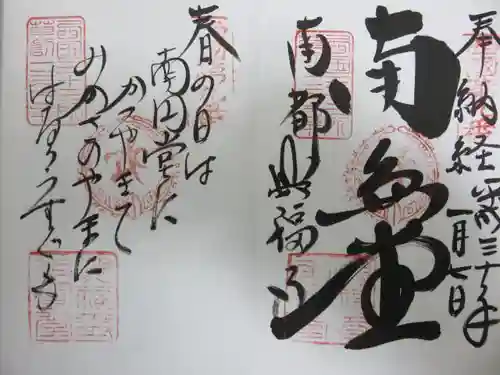 奉納経
平成三十年
一月七日
南円堂
南都興福寺
春の日は
南円堂に
かゞやきて
みかさのやまに
はるゝうすぐも